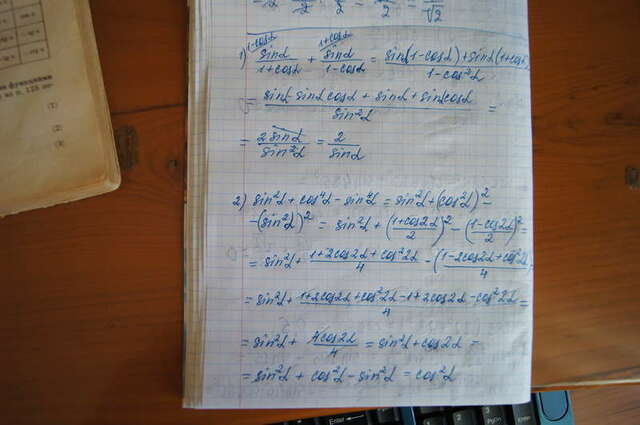 1) sinα/1+cosα + sinα/1-cosα = sinα(1-cosα)+sinα(1+cosα)/1-cos²α
1-cosα 1+cosα
= sinα-sinαcosα+sinα+sinαcosα/sin²α =
= 2sinα/sin²α = 2/sinα
2) sin²α+cos⁴α-sin⁴α = sin²α+(cos²α)²-
-(sin²α)² = sin²α+(1+cos2α/2)²-(1-cos2α/2)²=
= sin²α+1+2cos2α+cos²2α/4-(1-2cos2α+cos²2α/4)=
= sin²α+1+2cos2α+cos²2α-1+2cos2α-cos²2α/4=
= sin²α+4cos2α/4 = sin²α+cos2α =
= sin²α+cos²α-sin²α = cos²α
(1)
(2)
(3)
Enter